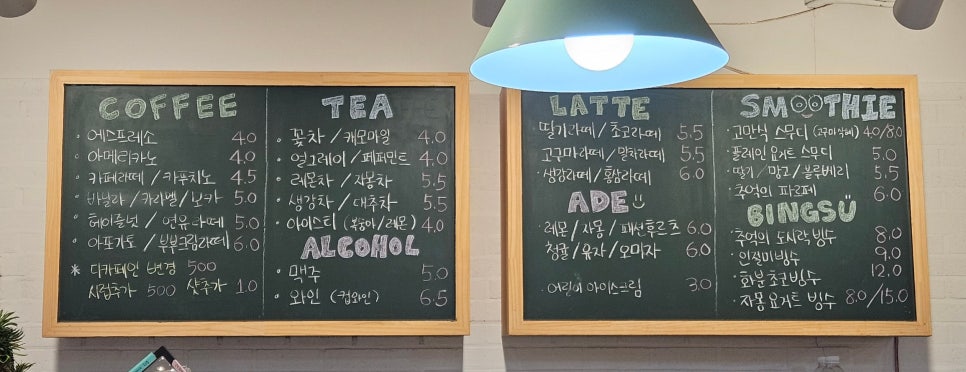 COFFEE
· 에스프레소 4.0
· 아메리카노 4.0
· 카페라떼 / 카푸치노 4.5
· 바닐라 / 카라멜 / 모카 5.0
· 헤이즐넛 / 연유라떼 5.0
· 아포가토 / 부부크림라떼 6.0
* 디카페인 변경 500
시럽추가 500 샷추가 1.0
TEA
· 꽃차 / 캐모마일 4.0
· 얼그레이 / 페퍼민트 4.0
· 레몬차 / 자몽차 5.5
· 생강차 / 대추차 5.5
· 아이스티 (복숭아/레몬) 4.0
ALCOHOL
· 맥주 5.0
· 와인 (컵와인) 6.5
LATTE
· 딸기라떼 / 초코라떼 5.5
· 고구마라떼 / 말차라떼 5.5
· 생강라떼 / 홍삼라떼 6.0
ADE
· 레몬 / 자몽 / 패션후르츠 6.0
· 청귤 / 유자 / 오미자 6.0
· 어린이 아이스크림 3.0
SMOOTHIE
· 고만식 스무디 4.0/8.0
· 플레인 요거트 스무디 5.0
· 딸기 / 망고 / 블루베리 5.5
· 추억의 파르페 6.0
BINGSU
· 추억의 도시락 빙수 8.0
· 인절미빙수 9.0
· 화분초코빙수 12.0
· 자몽요거트 빙수 8.0 / 15.0